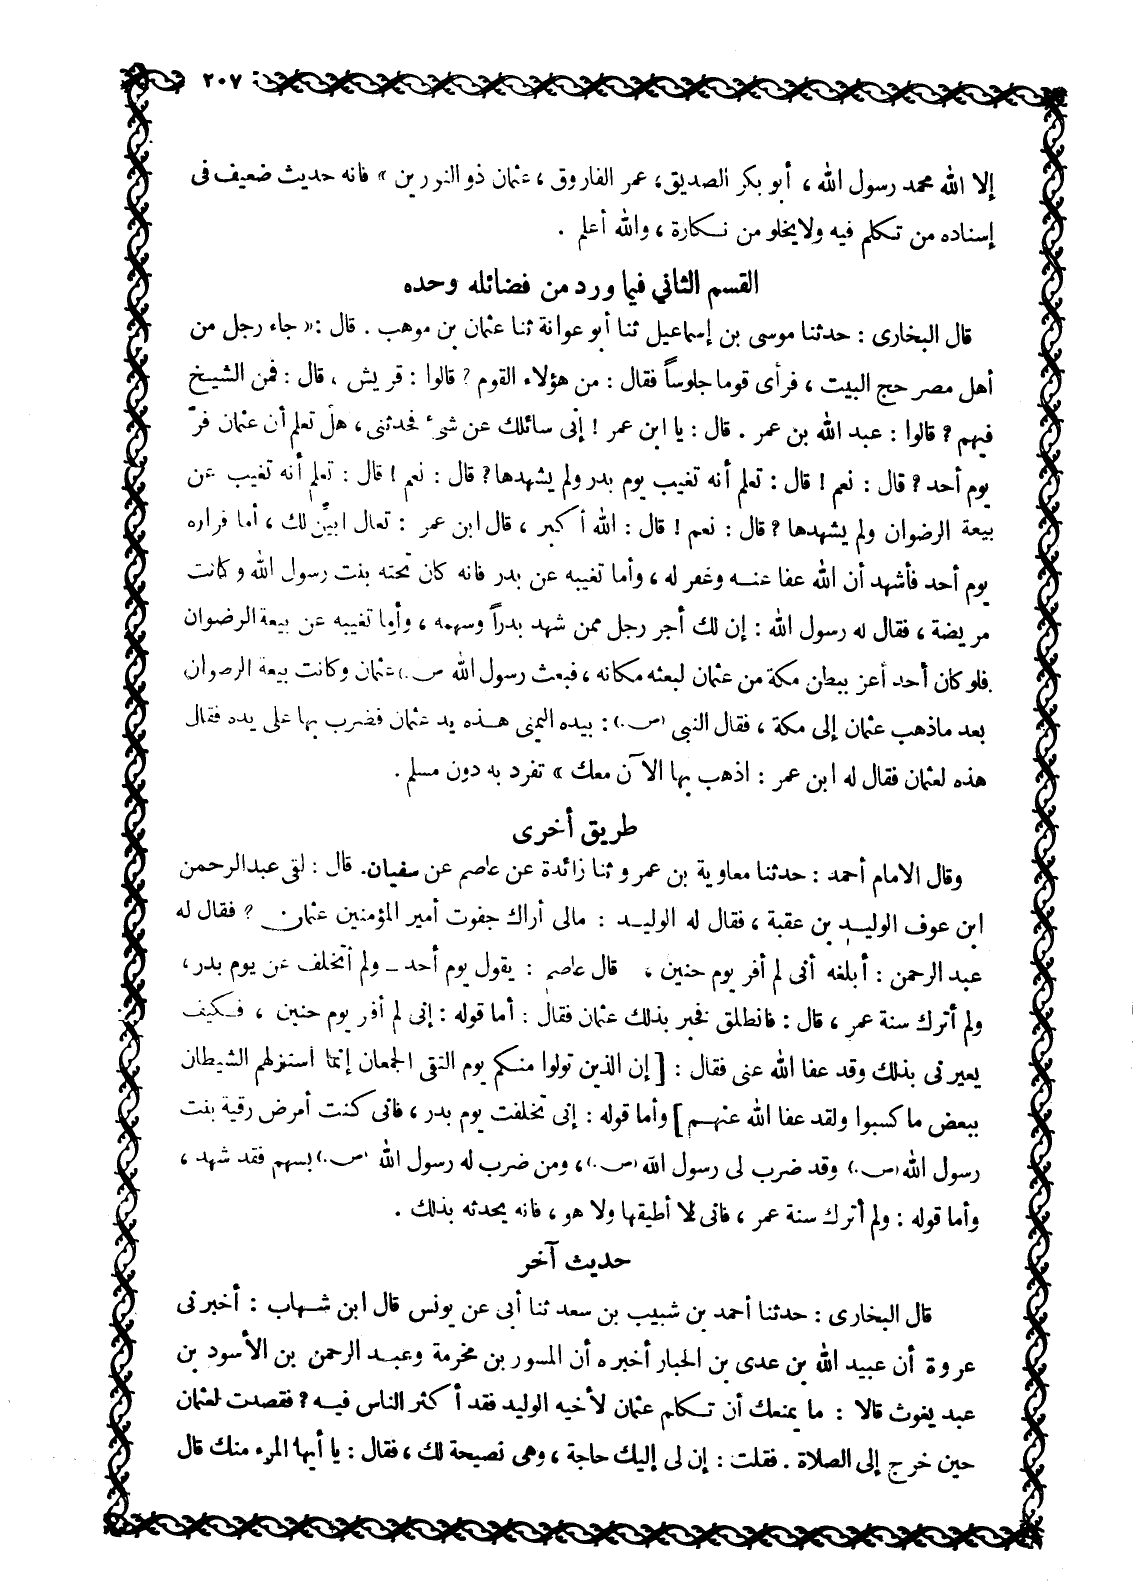 ٢٠٧
إلا الله محمد رسول الله ، أبو بكر الصديق، عمر الفاروق ، عثمان ذو النورين » فانه حديث ضعيف فى
إسناده من تكلم فيه ولا يخلو من نكارة ، والله أعلم .
القسم الثاني فيما ورد من فضائله وحده
قال البخارى : حدثنا موسى بن إسماعيل ثنا أبو عوانة ثنا عثمان بن موهب . قال : « جاء رجل من
أهل مصر حج البيت ، فرأى قوما جلوساً فقال : من هؤلاء القوم ? قالوا : قريش ، قال : فمن الشيخ
فيهم ? قالوا : عبد الله بن عمر . قال : يا ابن عمر ! إنى سائلك عن شىء فحدثنى ، هل تعلم أن عثمان فرّ
يوم أحد ? قال : نعم ! قال : تعلم أنه تغيب يوم بدر ولم يشهدها ? قال : نعم ! قال : تعلم أنه تغيب عن
بيعة الرضوان ولم يشهدها ? قال : نعم ! قال : الله أكبر ، قال ابن عمر : تعال ابيِّن لك ، أما فراره
يوم أحد فأشهد أن الله عفا عنه وغفر له ، وأما تغيبه عن بدر فانه كان تحته بنت رسول الله وكانت
مريضة ، فقال له رسول الله : إن لك أجر رجل ممن شهد بدراً وسهمه ، وأما تغيبه عن بيعة الرضوان
فلو كان أحد أعز ببطن مكة من عثمان لبعثه مكانه ، فبعث رسول الله (ص.) عثمان وكانت بيعة الرضوان
بعد ماذهب عثمان إلى مكة ، فقال النبى (ص.) : بيده اليمنى هذه يد عثمان فضرب بها على يده فقال
هذه لعثمان فقال له ابن عمر : اذهب بها الآن معك » تفرد به دون مسلم .
طريق أخرى
وقال الامام أحمد : حدثنا معاوية بن عمر و ثنا زائدة عن عاصم عن سفيان. قال : لقى عبدالرحمن
ابن عوف الوليد بن عقبة ، فقال له الوليد : مالى أراك جفوت أمير المؤمنين عثمان ? فقال له
عبد الرحمن : أبلغه أنى لم أفر يوم حنين ، قال عاصم : يقول يوم أحد ـ ولم أتخلف عن يوم بدر ،
ولم أترك سنة عمر ، قال : فانطلق فخبر بذلك عثمان فقال : أما قوله : إنى لم أفر يوم حنين ، فكيف
يعيرنى بذلك وقد عفا الله عنى فقال : [ إن الذين تولوا منكم يوم التقى الجمعان إنما استزلهم الشيطان
ببعض ما كسبوا ولقد عفا الله عنهم ] وأما قوله : إنى تخلفت يوم بدر ، فانى كنت أمرض رقية بنت
رسول الله (ص.) وقد ضرب لى رسول الله (ص.) ، ومن ضرب له رسول الله (ص.) بسهم فقد شهد ،
وأما قوله : ولم أترك سنة عمر ، فانى لا أطيقها ولا هو ، فانه يحدثه بذلك .
حديث آخر
قال البخارى : حدثنا أحمد بن شبيب بن سعد ثنا أبى عن يونس قال ابن شهاب : أخبرنى
عروة أن عبيد الله بن عدى بن الخيار أخبره أن المسور بن مخرمة وعبد الرحمن بن الأسود بن
عبد يغوث قالا : ما يمنعك أن تكلم عثمان لأخيه الوليد فقد أكثر الناس فيه ? فقصدت لعثمان
حين خرج إلى الصلاة . فقلت : إن لى إليك حاجة ، وهى نصيحة لك ، فقال : يا أيها المرء منك قال